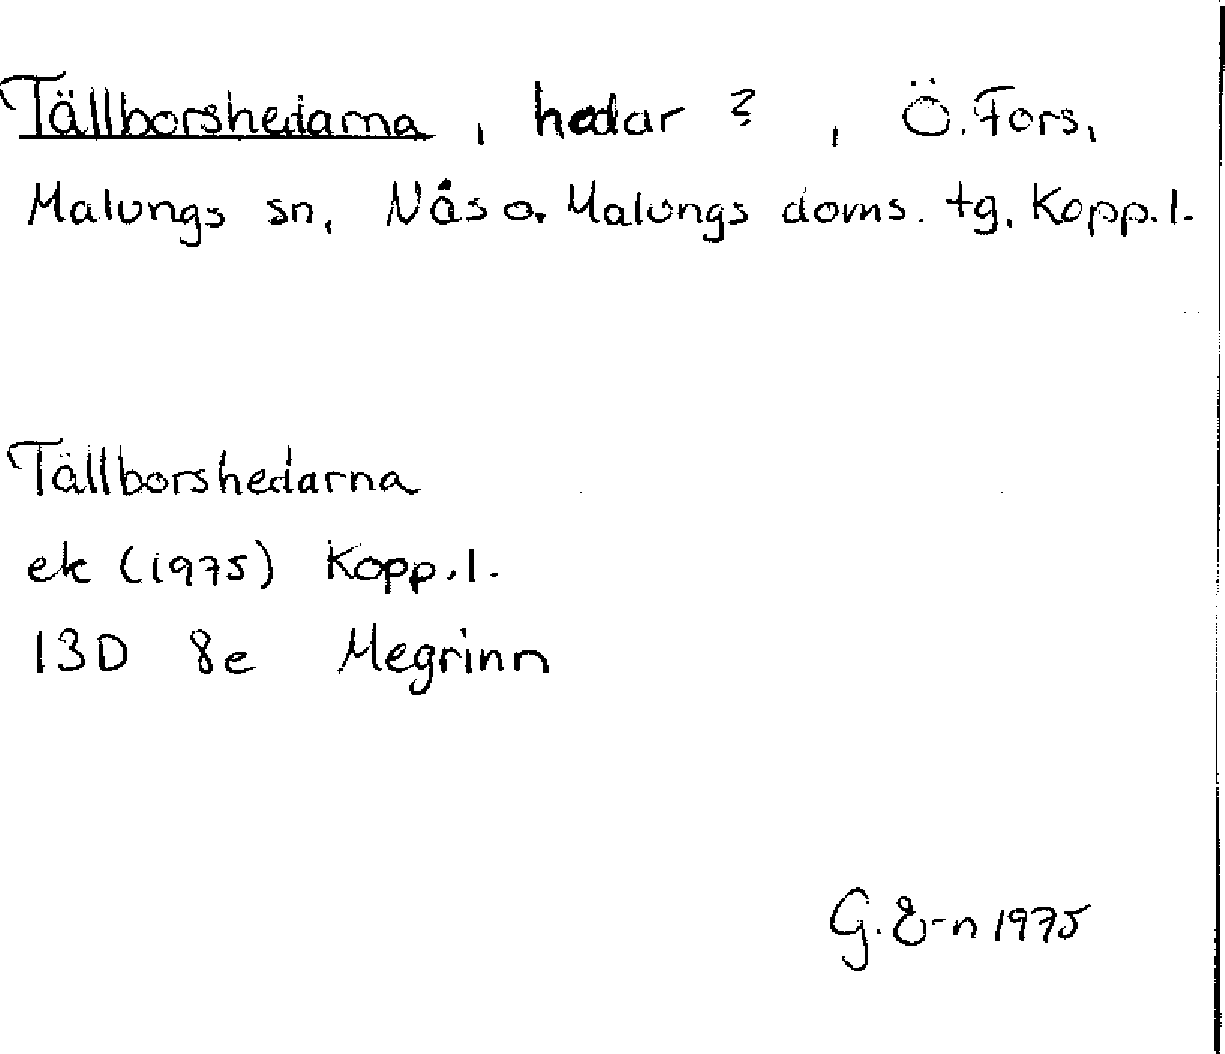 Tällborshedarna, hedar ?, Ö. Fors,
Malungs sn, Nås o. Malungs doms. tg. Kopp. l.
Tällborshedarna
ek (1975) Kopp. l.
13D 8e Megrinn
G. E-n 1975